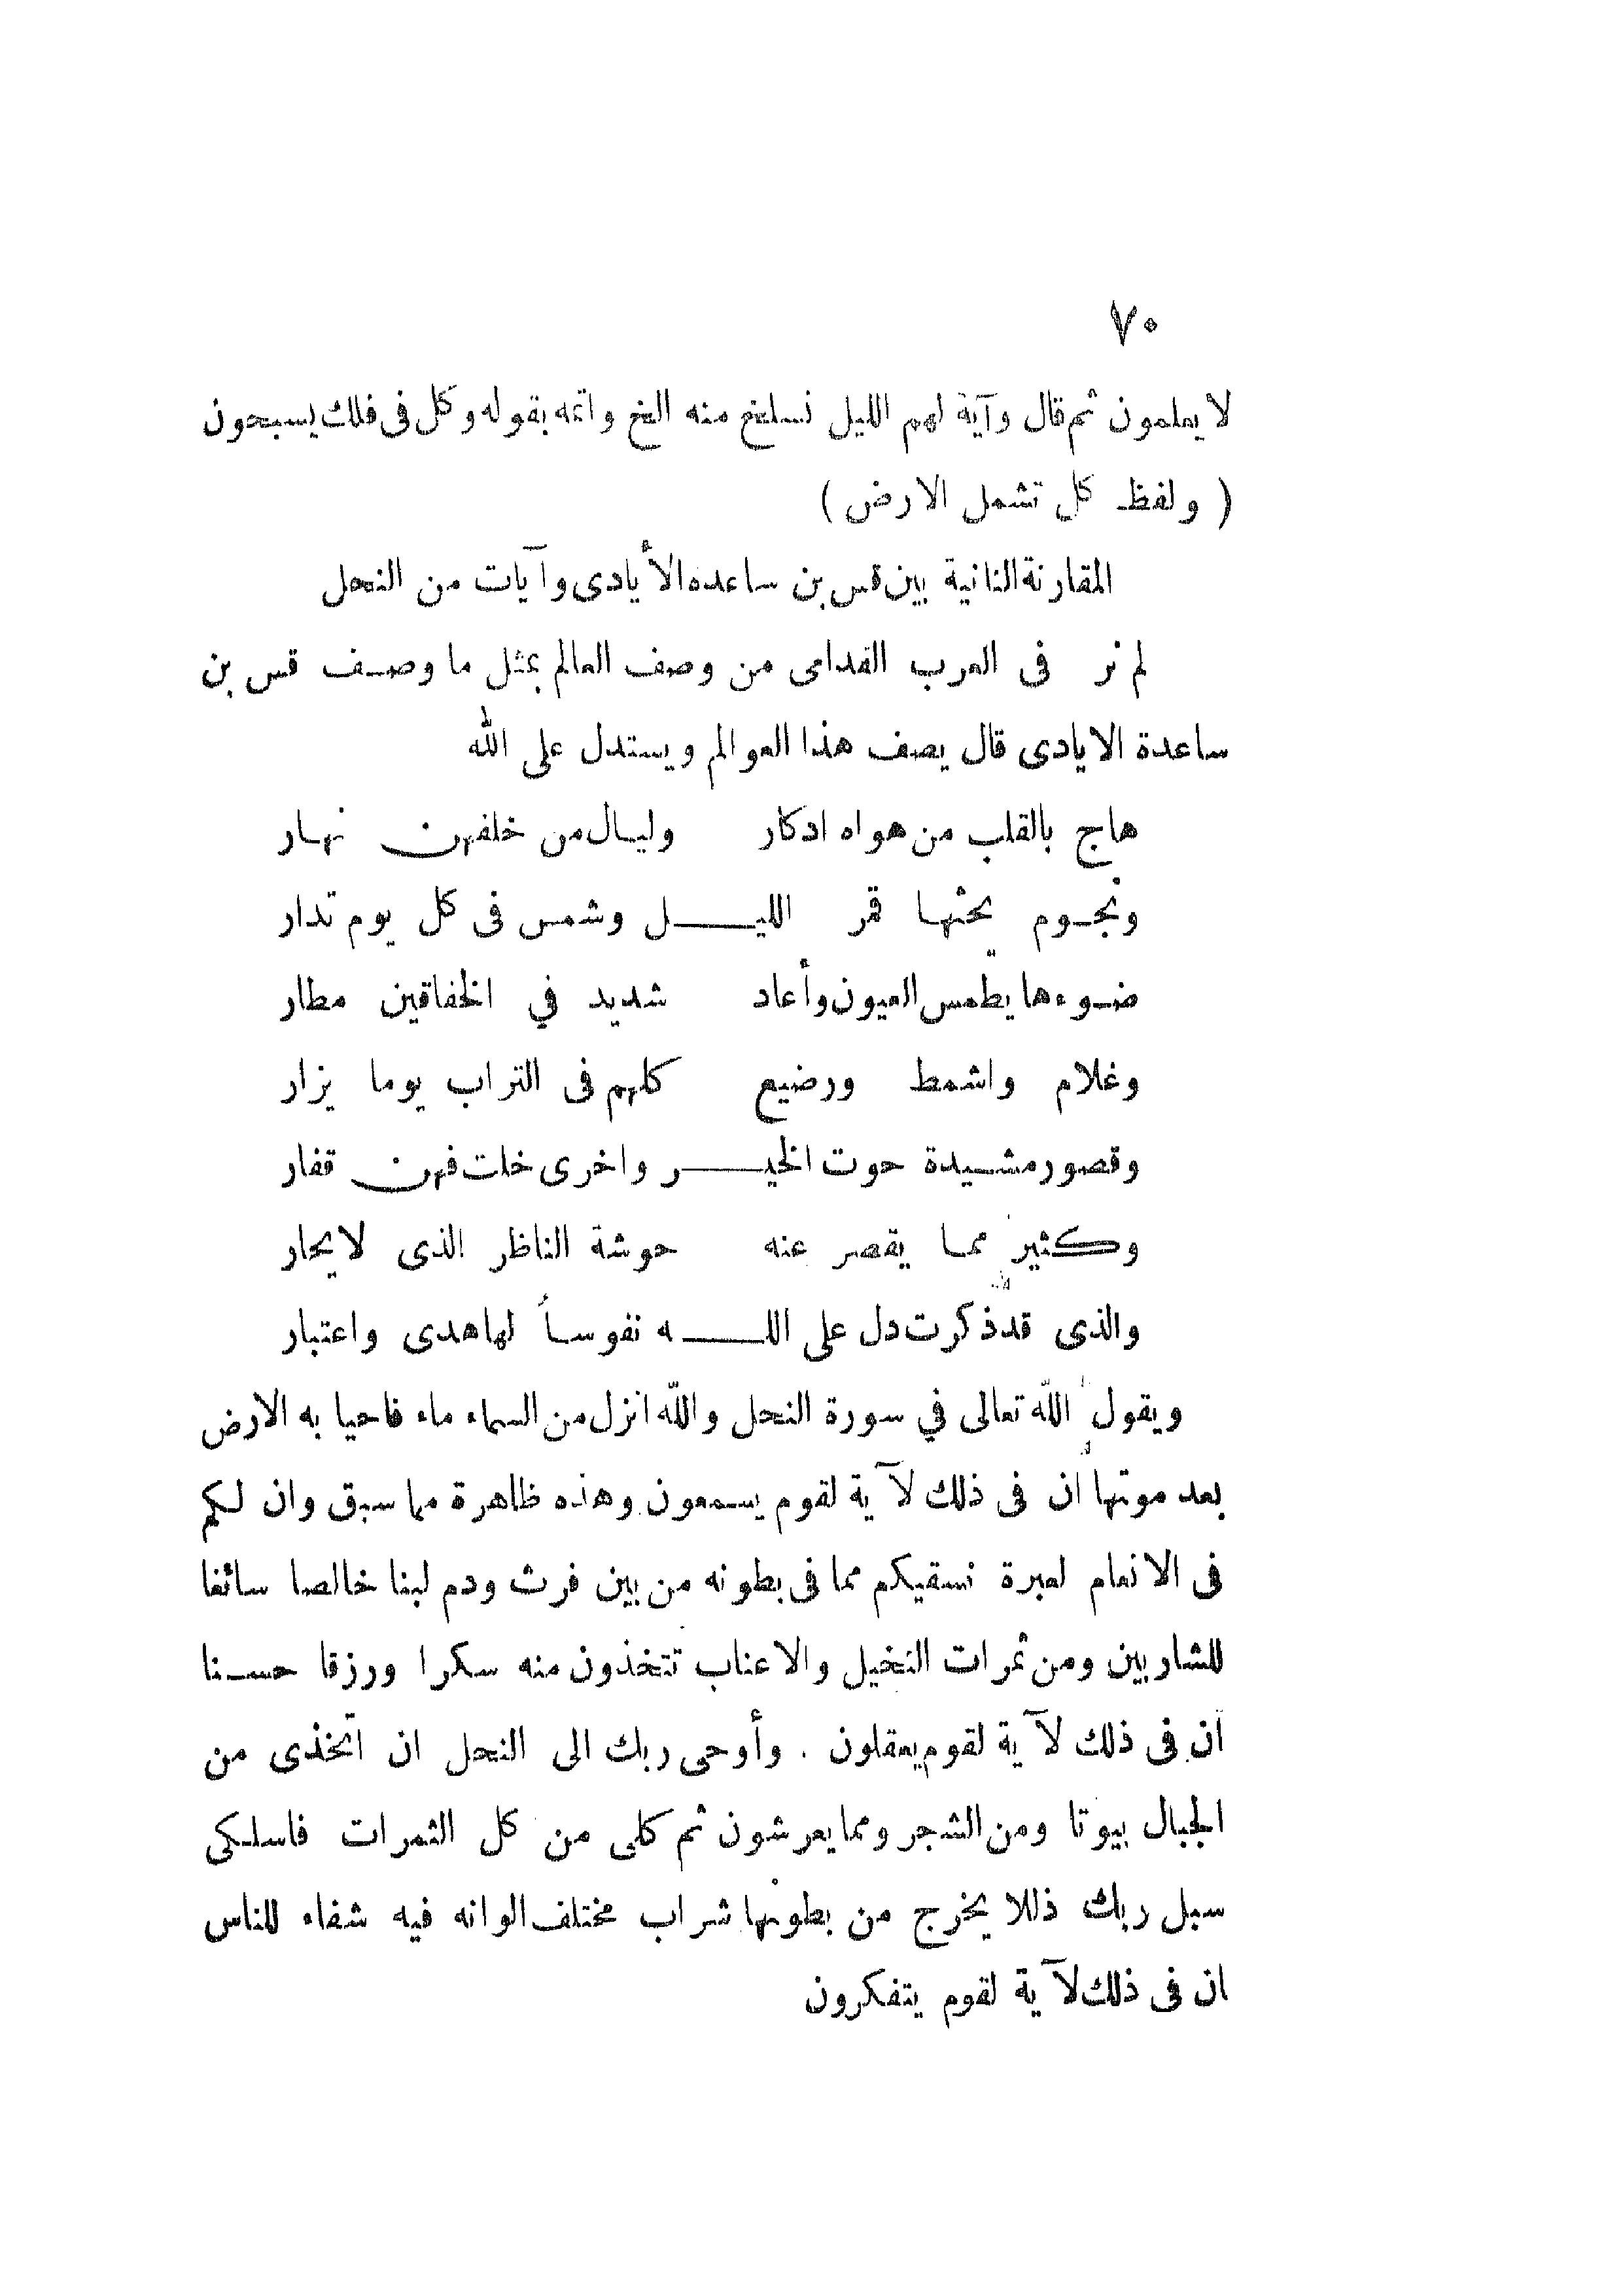 ٧٠
لا يعلمون ثم قال وآية لهم الليل نسلخ منه الخ واتمه بقوله وكل فى فلك يسبحون
( ولفظ كل تشمل الارض )
المقارنة الثانية بين قس بن ساعده الأيادى وآيات من النحل
لم نر فى العرب القدامى من وصف العالم بمثل ما وصف قس بن
ساعدة الايادى قال يصف هذا العوالم ويستدل على الله
هاج بالقلب من هواه ادكار وليال من خلفهن نهار
ونجوم يحثها قمر الليــــل وشمس فى كل يوم تدار
ضوءها يطمس العيون وأعاد شديد في الخفاقين مطار
وغلام واشمط ورضيع كلهم فى التراب يوما يزار
وقصور مشيدة حوت الخيــــر واخرى خلت فهن قفار
وكثير مما يقصر عنه حوشة الناظر الذى لا يحار
والذى قد ذكرت دل على اللــــه نفوساً لها هدى واعتبار
ويقول الله تعالى في سورة النحل والله انزل من السماء ماء فاحيا به الارض
بعد موتها ان فى ذلك لآية لقوم يسمعون وهذه ظاهرة مما سبق وان لكم
فى الانعام لعبرة نسقيكم مما فى بطونه من بين فرث ودم لبنا خالصا سائغا
للشاربين ومن ثمرات النخيل والاعناب تتخذون منه سكرا ورزقا حسنا
ان فى ذلك لآية لقوم يعقلون . وأوحى ربك الى النحل ان اتخذى من
الجبال بيوتا ومن الشجر ومما يعرشون ثم كلى من كل الثمرات فاسلكى
سبل ربك ذللا يخرج من بطونها شراب مختلف الوانه فيه شفاء للناس
ان فى ذلك لآية لقوم يتفكرون